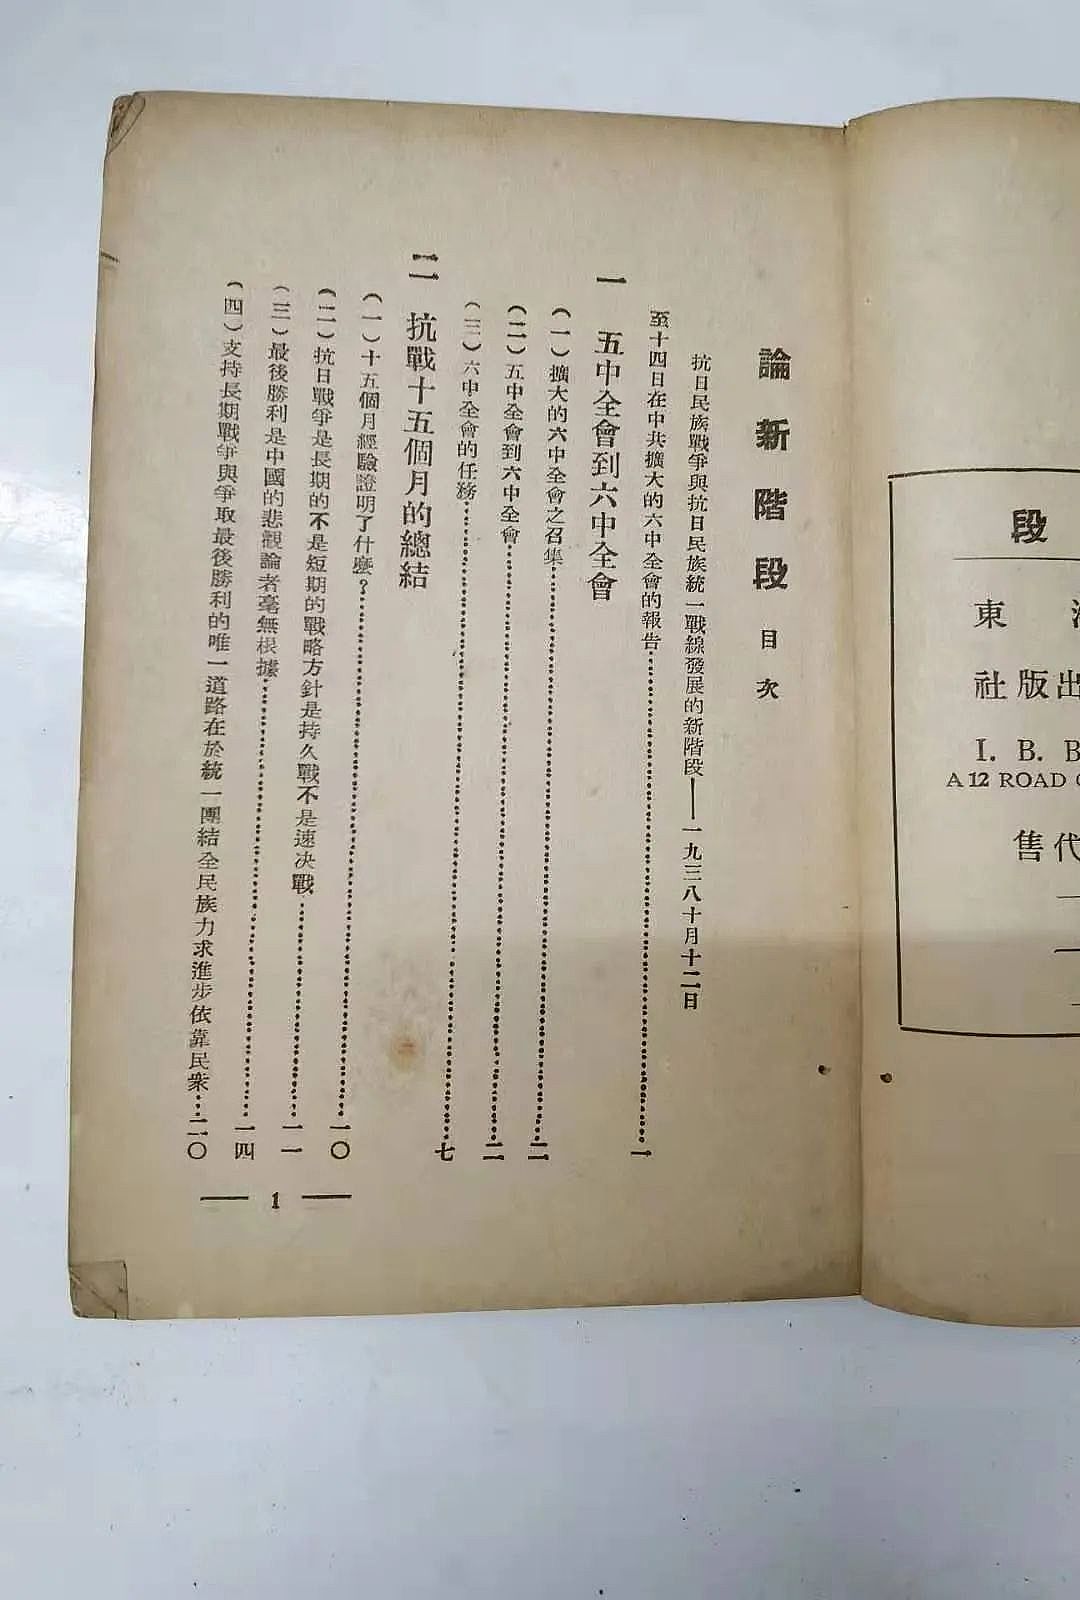 段
東
出版社
I. B. B
A 12 ROAD
代售
論新階段 目次
抗日民族戰爭與抗日民族統一戰線發展的新階段——一九三八十月十二日
至十四日在中共擴大的六中全會的報告……一
一 五中全會到六中全會
(一)擴大的六中全會之召集……二
(二)五中全會到六中全會……二
(三)六中全會的任務……七
二 抗戰十五個月的總結
(一)十五個月經驗證明了什麼?……一〇
(二)抗日戰爭是長期的不是短期的戰略方針是持久戰不是速决戰……一一
(三)最後勝利是中國的悲觀論者毫無根據……一四
(四)支持長期戰爭與爭取最後勝利的唯一道路在於統一團結全民族力求進步依靠民衆……二〇
— 1 —